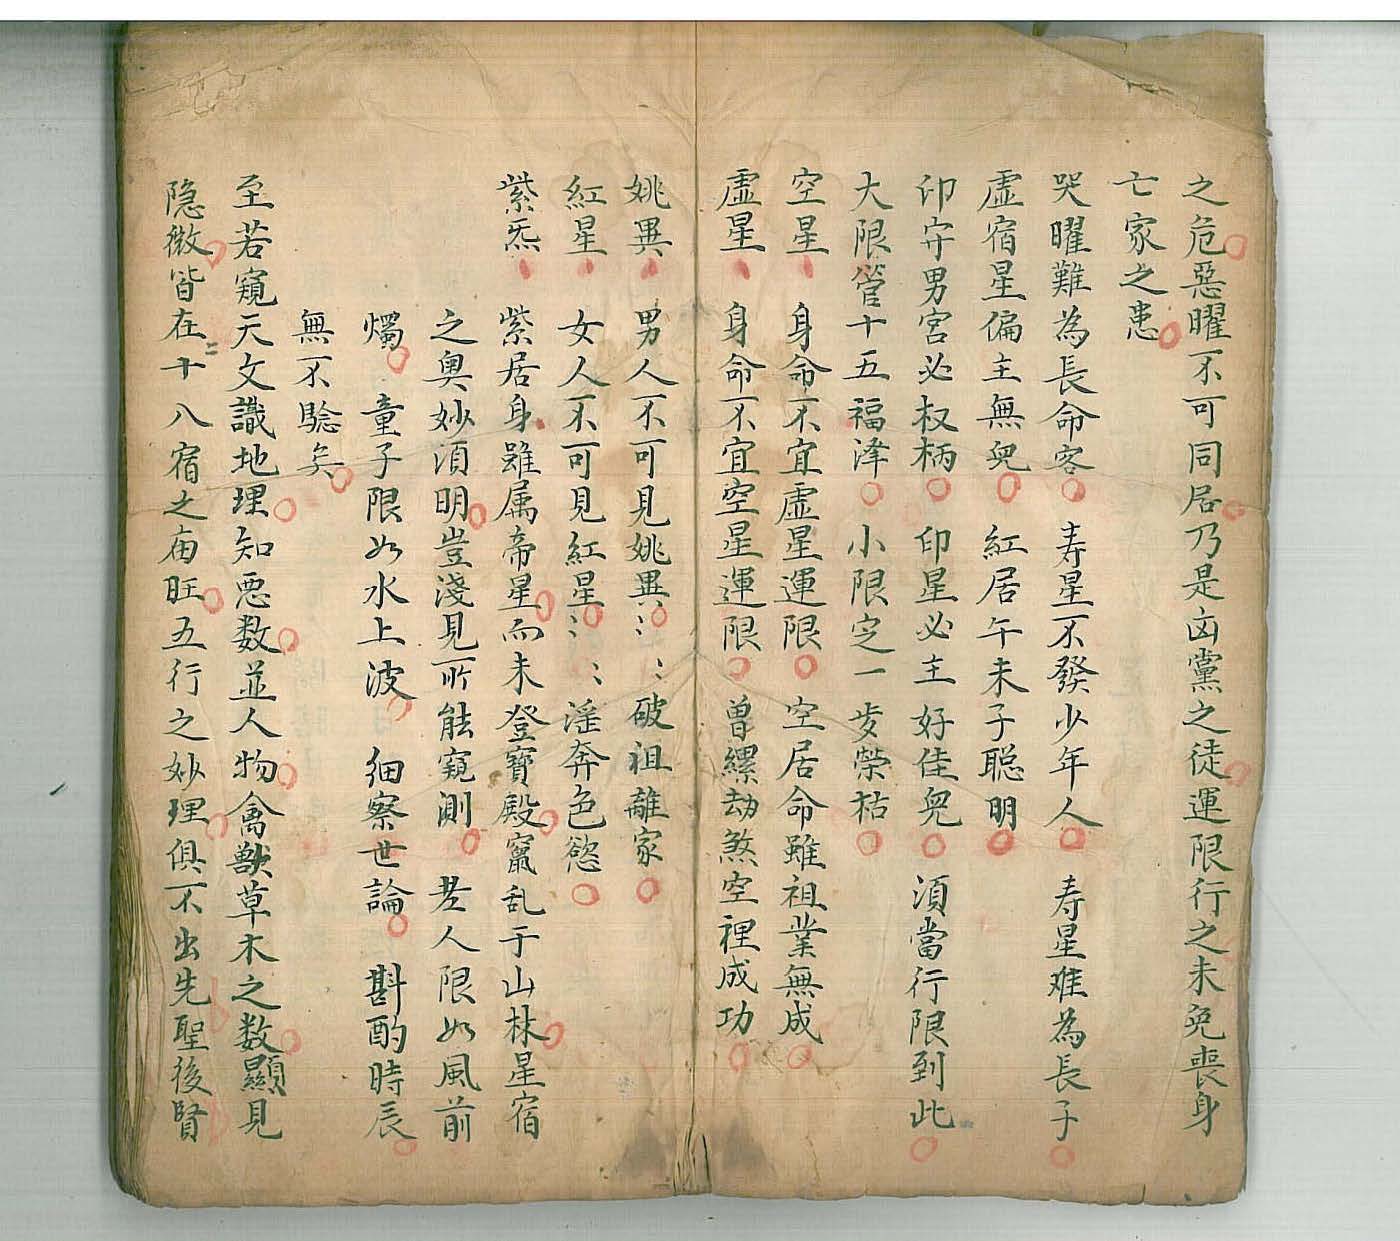 之危惡曜不可同居乃是凶黨之徒運限行之未免喪身
亡家之患
哭曜難為長命客 寿星不發少年人 寿星难為長子
虛宿星偏主無兒 紅居午未子聪明
印守男宮必权柄 印星必主好佳兒 須當行限到此
大限管十五福泽 小限定一岁荣枯
空星 身命不宜虛星運限 空居命雖祖業無成
虛星 身命不宜空星運限 曾縲劫煞空裡成功
姚異 男人不可見姚異〻〻破祖離家
紅星 女人不可見紅星〻〻淫奔色慾
紫炁 紫居身雖属帝星而未登寶殿竄乱于山林星宿
之奥妙須明豈淺見所能窺測 老人限如風前
燭 童子限如水上波 細察世論 斟酌時辰
無不騐矣
至若窺天文識地理知悪数並人物禽獸草木之数顯見
隐微皆在十八宿之庙旺五行之妙理俱不出先聖後賢